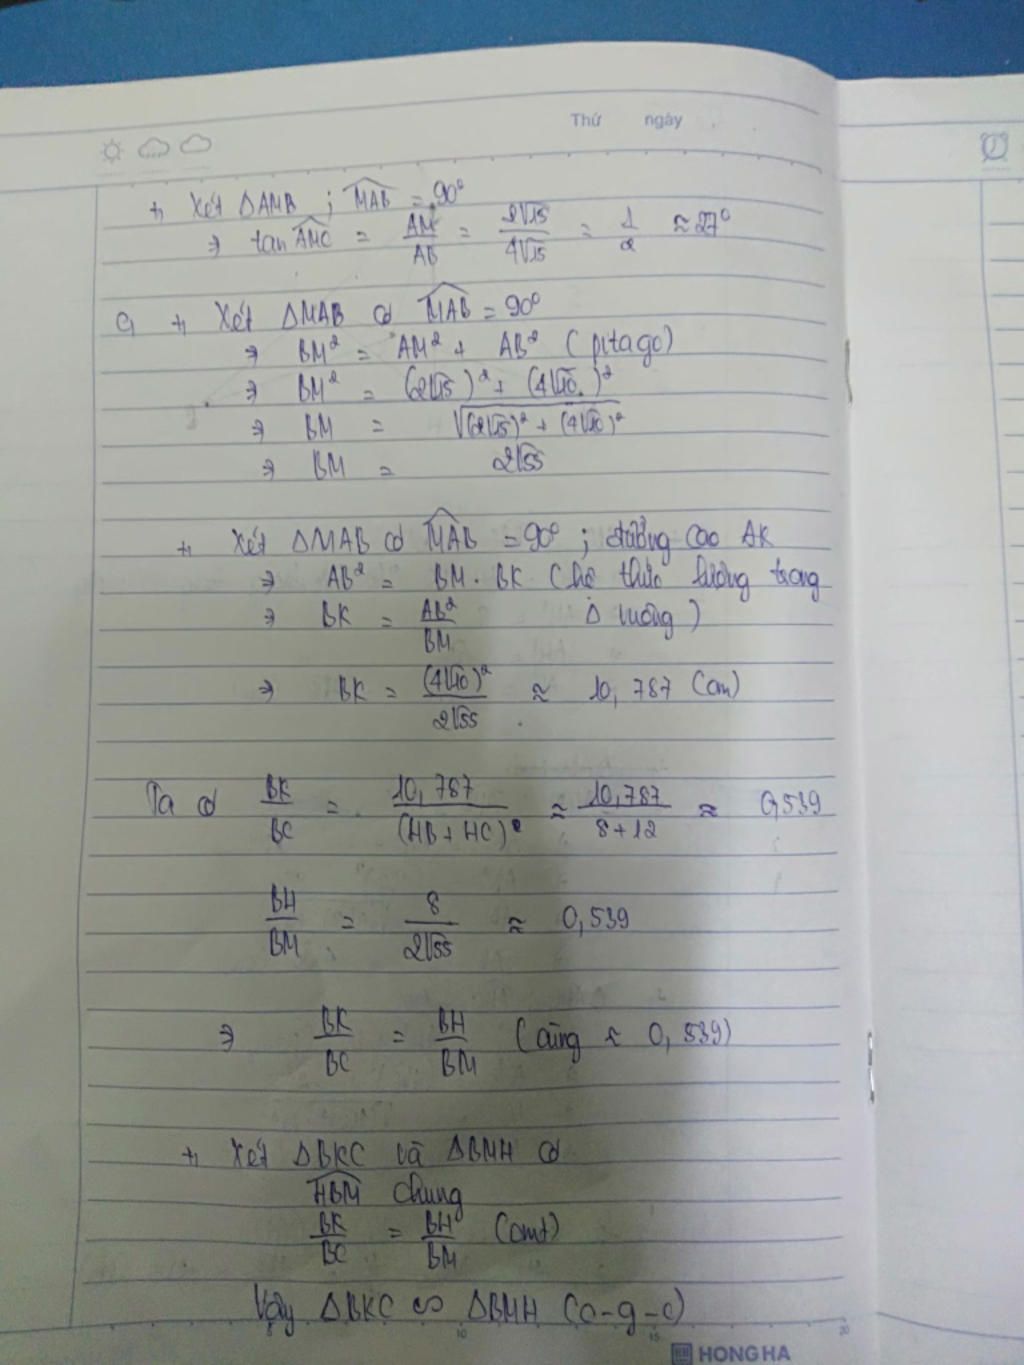 Thứ ngày
+, Xét ΔAMB ; MAB = 90°
⇒ tan AMC = AM/AB = 2√15/4√15 = 1/2 ≈ 27°
c, +, Xét ΔMAB có MAB = 90°
⇒ BM² = AM² + AB² (pitago)
⇒ BM² = (2√15)² + (4√10)²
⇒ BM = √(2√15)² + (4√10)²
⇒ BM = 2√55
+, Xét ΔMAB có MAB = 90° ; đường cao AK
⇒ AB² = BM . BK (hệ thức lượng trong
⇒ BK = AB²/BM Δ vuông)
⇒ BK = (4√10)²/2√55 ≈ 10,787 (cm)
Ta có BK/BC = 10,787/(HB + HC) ≈ 10,787/8+12 ≈ 0,539
BH/BM = 8/2√55 ≈ 0,539
⇒ BK/BC = BH/BM (cùng ≈ 0,539)
+, Xét ΔBKC và ΔBMH có
HBM chung
BK/BC = BH/BM (cmt)
Vậy ΔBKC ∽ ΔBMH (c-g-c)
10 15 20
HONG HA